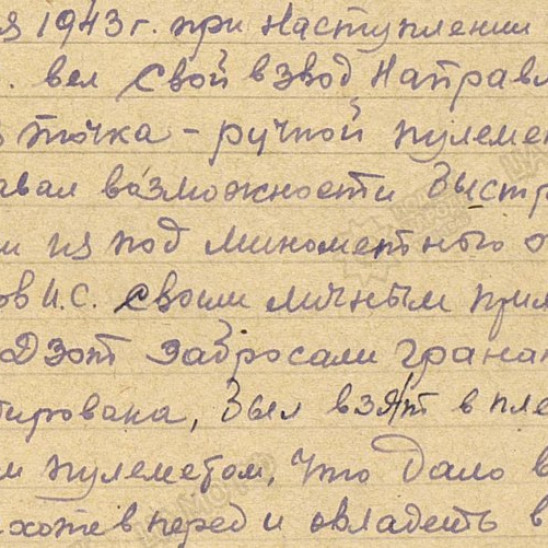 я 1943 г. при Наступлении
. вел свой взвод Направл
точка - ручной пулеме
авал возможности Выстр
и из под миномеетного о
ов И.С. своим личным прим
Дзот забросали гранат
тирована, 3 был взят в пле
м пулеметом, что дало в
хоть вперед и овладеть в